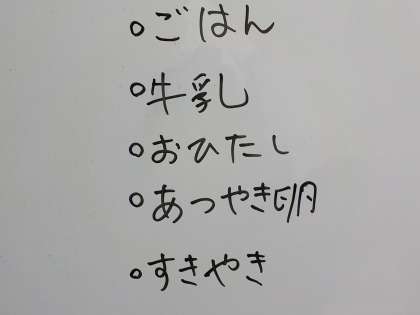 ○ごはん
○牛乳
○おひたし
○あつやき卵
○すきやき